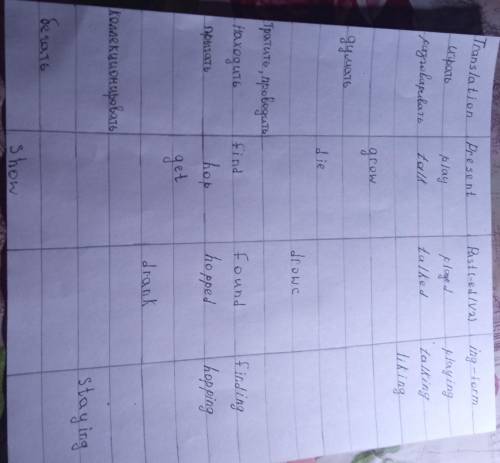 Translation Present Past(-ed/V2) ing-form
играть play played playing
разговаривать talk talked talking
liking
grow
думать
die
drowe
тратить, проводить
находить find found finding
прыгать hop hopped hopping
get
drank
коллекционировать
staying
бегать
show